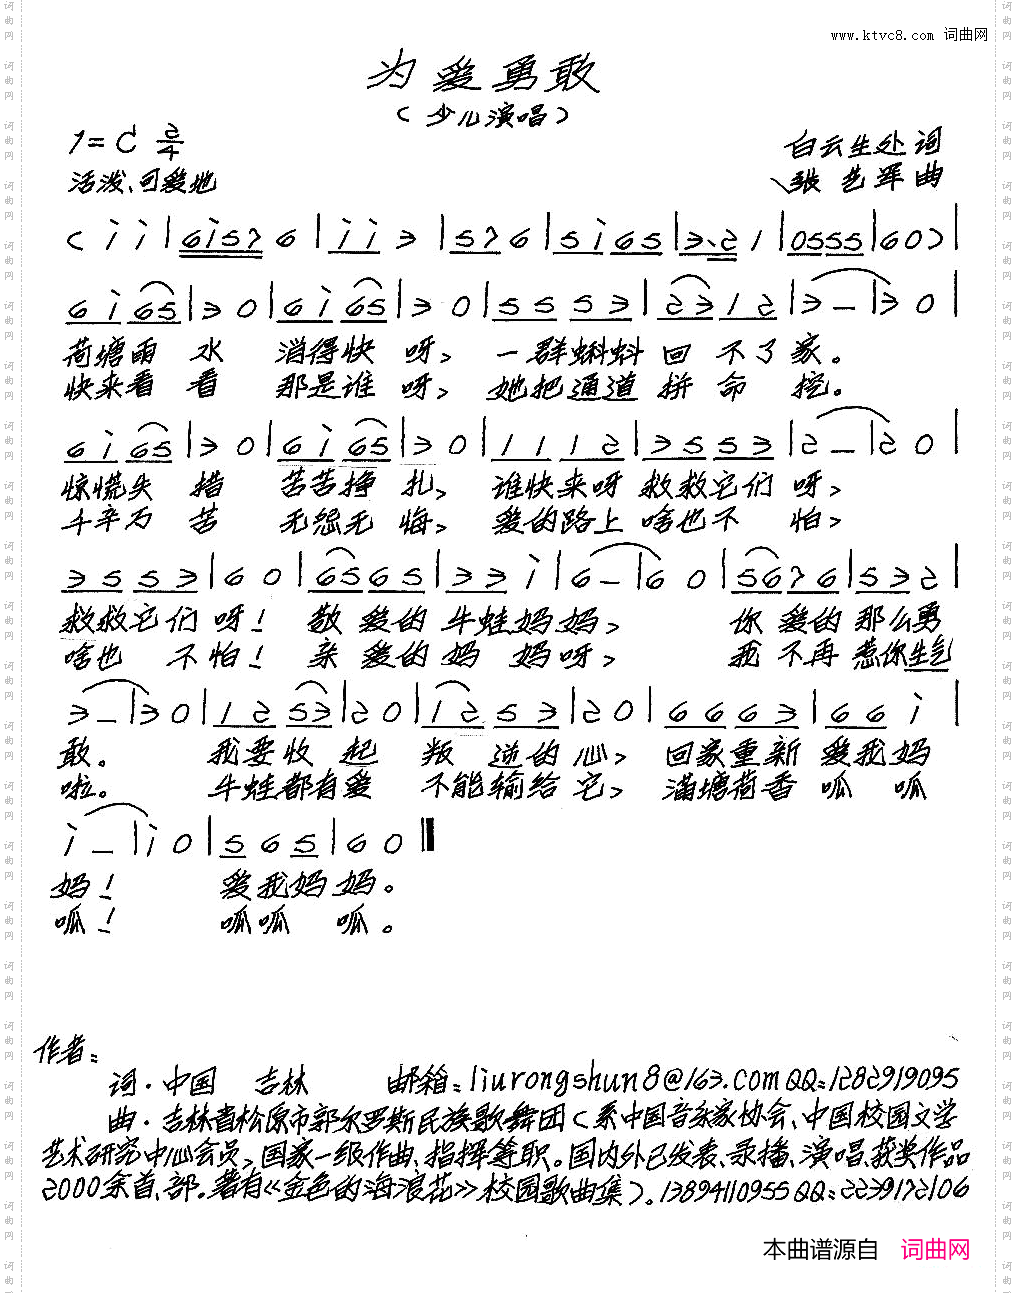 www.ktvc8.com 词曲网
为爱勇敢
(少儿演唱)
1=C 2/4
白云生处 词
活泼、可爱地
张艺军 曲
( i i | 6i57 6 | i i 3 | 5 7 6 | 5 i 6 5 | 3、2 1 | 0555 | 60 ) |
6 i 65 | 3 0 | 6 i 65 | 3 0 | 5 5 5 3 | 2 3 1 2 | 3 – | 3 0 |
荷塘雨 水 消得快 呀, 一群蝌蚪 回 不了家。
快来看 看 那是谁 呀, 她把通道 拼 命 挖。
6 i 65 | 3 0 | 6 i 65 | 3 0 | 1 1 1 2 | 3 5 5 3 | 2 – | 2 0 |
惊慌失 措 苦苦挣 扎, 谁快来呀 救救它们 呀,
千辛万 苦 无怨无 悔, 爱的路上 啥也不 怕,
3 5 5 3 | 6 0 | 65 6 5 | 3 3 i | 6 – | 6 0 | 5676 | 5 3 2 |
救救它们 呀! 敬爱的 牛蛙妈妈, 你爱的 那么勇
啥也 不 怕! 亲爱的妈 妈呀, 我不再 惹你生气
3 – | 3 0 | 1 2 53 | 2 0 | 1 2 5 3 | 2 0 | 6 6 6 3 | 6 6 i |
敢。 我要收 起 叛 逆的心, 回家重新 爱我妈
啦。 牛蛙都有爱 不能输给 它, 满塘荷香 呱 呱
i – | i 0 | 5 6 5 | 6 0 ‖
妈! 爱我妈妈。
呱! 呱呱 呱。
作者:
词·中国 吉林 邮箱:liurongshun8@163.com QQ:1282919095
曲·吉林省松原市郭尔罗斯民族歌舞团(系中国音乐家协会、中国校园文学
艺术研究中心会员,国家一级作曲、指挥等职。国内外已发表、录播、演唱、获奖作品
2000余首、部。著有《金色的海浪花》校园歌曲集)。13894110955 QQ:2239172106
本曲谱源自 词曲网
词曲网